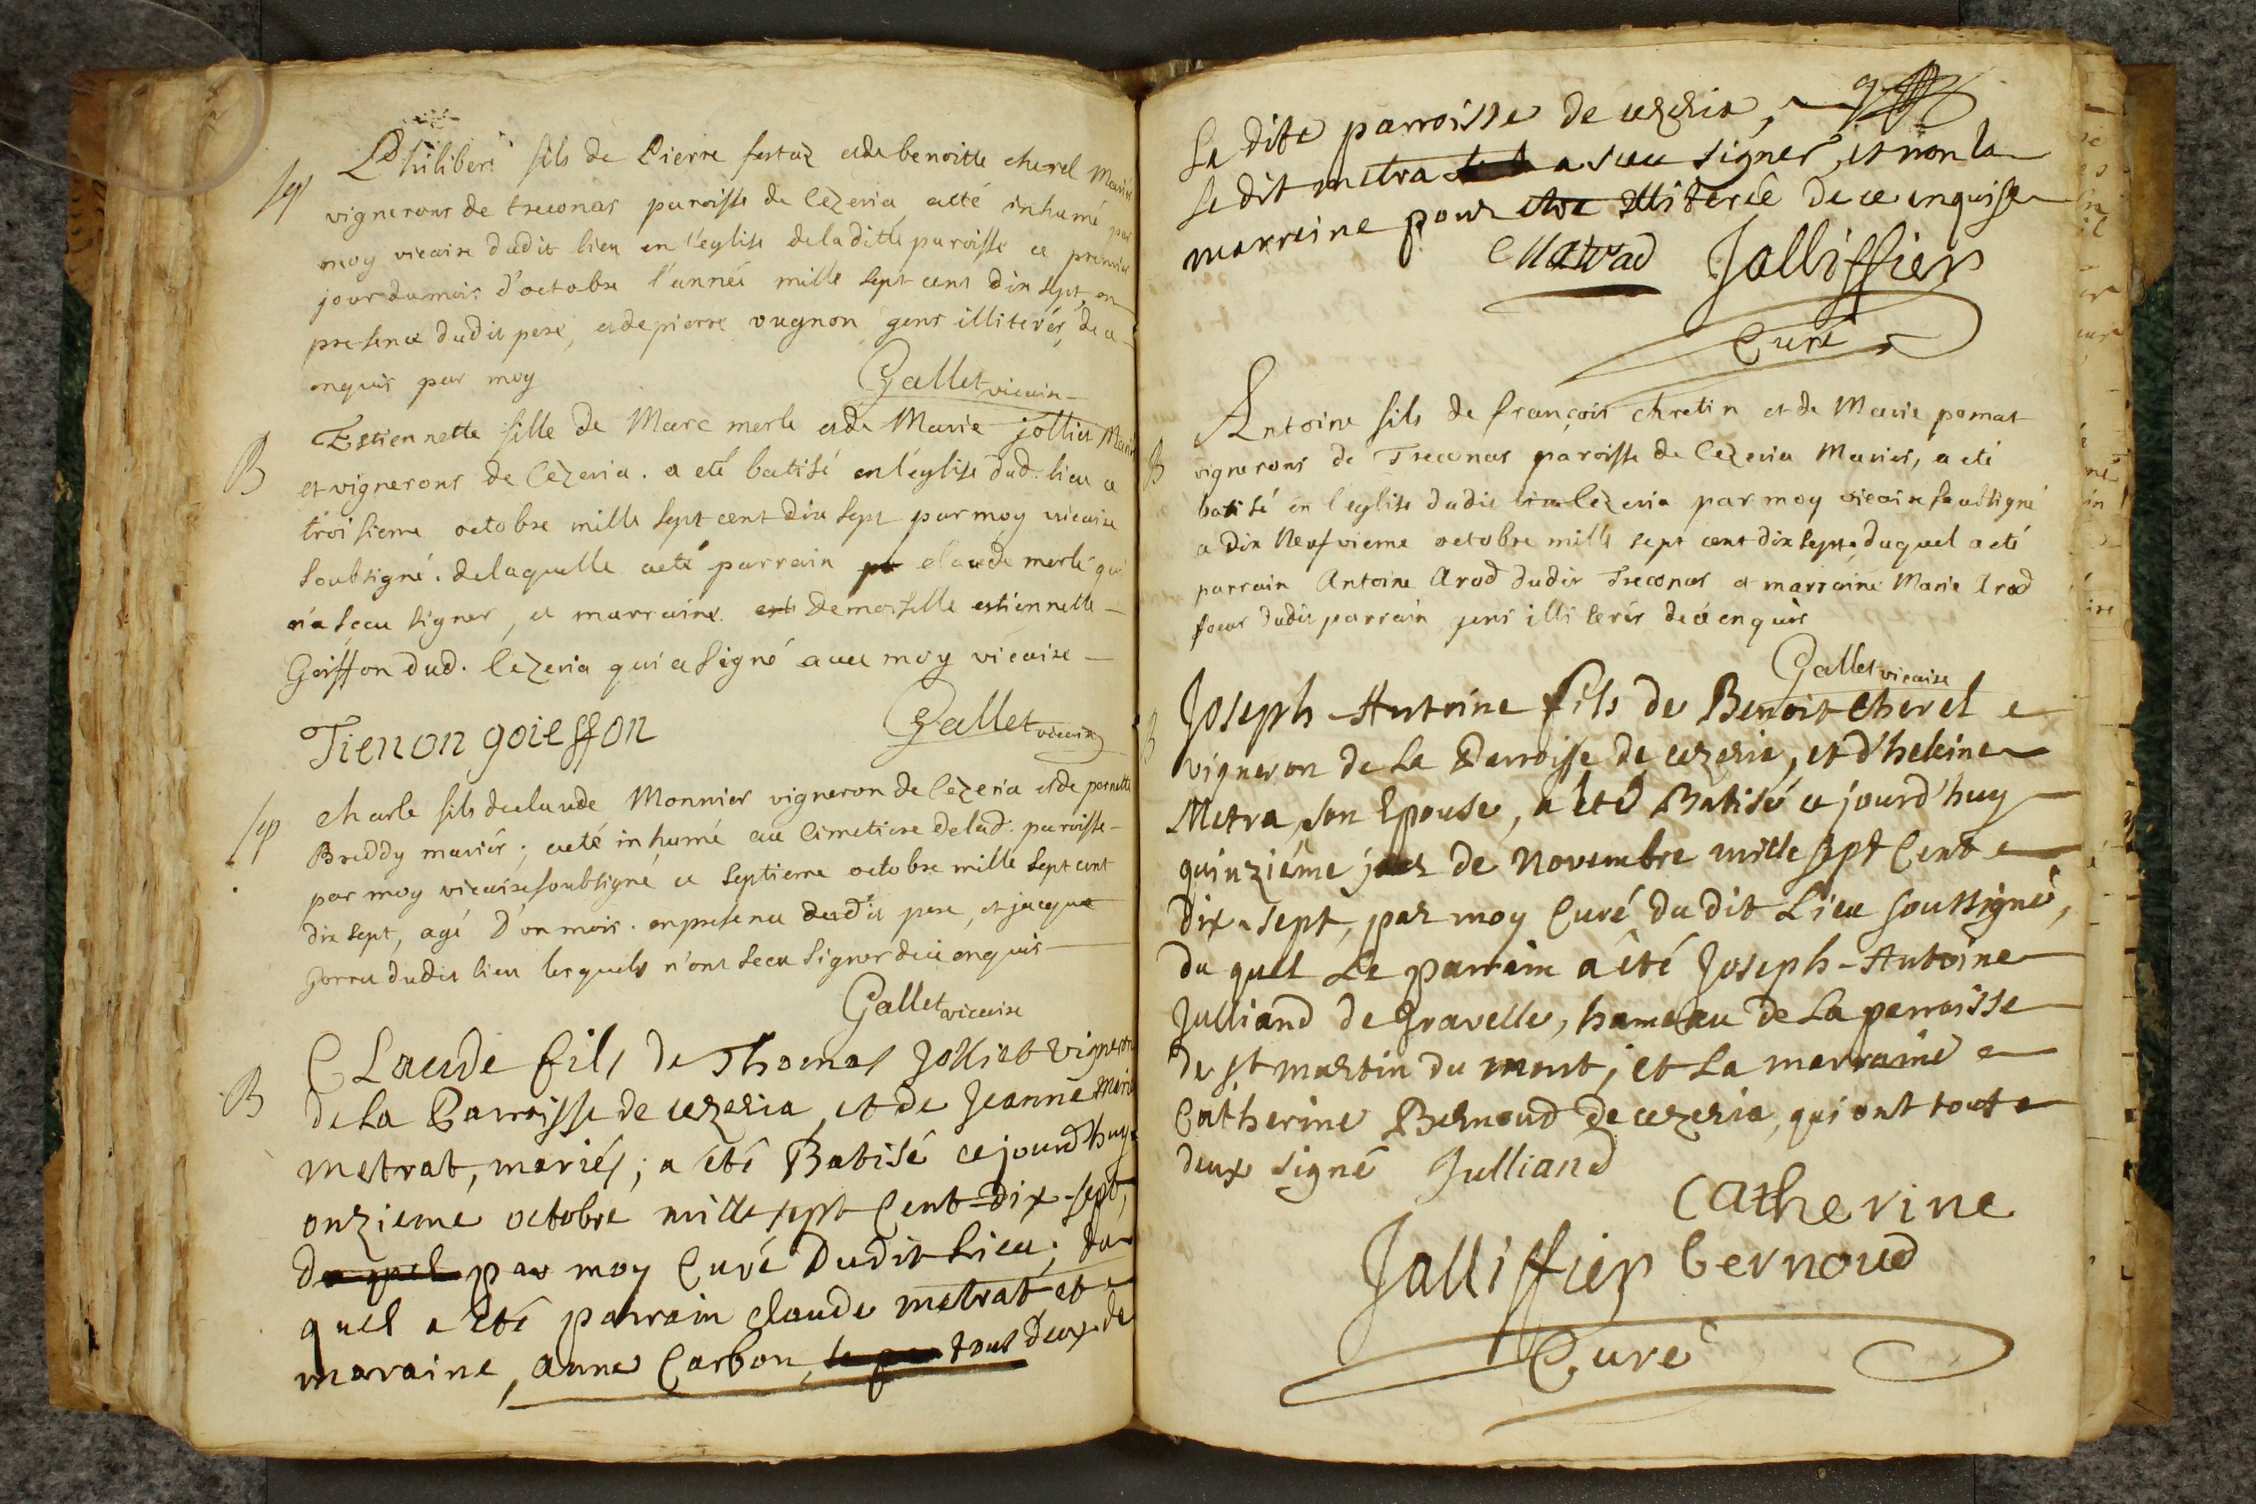 Sep
Philibert fils de Pierre festaz et de benoitte cherel Mariés
vignerons de treconas paroisse de Cezeria, a eté inhumé par
moy vicaire dudit lieu en l'eglise de la ditte paroisse ce premier
jour du mois d'octobre l'année mille sept cent dix sept, en
presence dudit pere, et de pierre vugnon gens illiterés, de ce
enquis par moy
Gallet vicaire
B
Estiennette fille de Marc merle et de Marie jolliet Mariés
et vignerons de Cezeria. a eté batisé en l'eglise dud. lieu ce
troisieme octobre mille sept cent dix sept par moy vicaire
soubsigné. de laquelle a eté parrain claude merle qui
n'a sceu signer, et marraine demoiselle estiennette
Goiffon dud. Cezeria qui a signé avec moy vicaire
Gallet vicaire
Tienon goieffon
Sep
charle fils de claude Monnier vigneron de Cezeria et de pernette
Breddy mariés; a eté inhumé au Cimetiere de lad. paroisse
par moy vicaire soubsigné ce septieme octobre mille sept cent
dix sept, agé d'un mois. en presence dudit pere, et jacque
gorru dudit lieu lesquels n'ont sceu signer de ce enquis
Gallet vicaire
B
Claude fils de Thomas Jolliet vigneron
de La Parroisse de cezeria, et de Jeanne Marie
metrat, mariés; a été Batisé ce jourd'huy
onzieme octobre mille sept Cent-dix-sept,
du quel par moy Curé Dudit Lieu; du
quel a été parrain claude metrat et
maraine, anne Carbon, tous deux de
La dite parroisse de cezeria,
le dit metra a sceu signer, et non la
marreine pour etre illiterée de ce enquise
Matrad Jalliffier
Curé
B
Antoine fils de françois chretin et de Marie pomat
vignerons de Treconas paroisse de Cezeria Mariés, a eté
batisé en l'eglise dudit lieu Cezeria par moy vicaire soubsigné
ce dix Neufvieme octobre mille sept cent dix sept, duquel a eté
parrain Antoine Arod dudit Treconas et marraine Marie Arod
soeur dudit parrain gens illiterés de ce enquis
Gallet vicaire
B
Joseph-Antoine fils de Benoit cherel
vigneron de La Parroisse de cezeria, et d'heleine
Metra, son Epouse, a été Batisé ce jourd'huy
quinziéme jour de novembre mille sept Cent
dix-sept, par moy Curé du dit Lieu soussigné,
du quel Le parrain a été Joseph-Antoine
Julliand de gravelle, hameau de La parroisse
de st martin du mont, et La marraine
Catherine Bernoud de cezeria, qui ont tout
deux signé Julliand
Catherine
Jalliffier bernoud
Curé